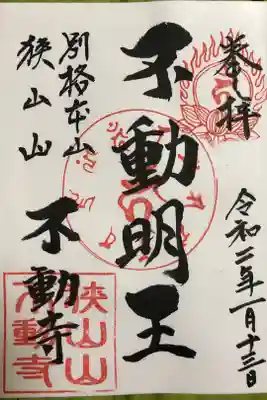 奉拝
令和二年一月十三日
不動明王
別格本山
狭山山
不動寺
狭山山
不動寺